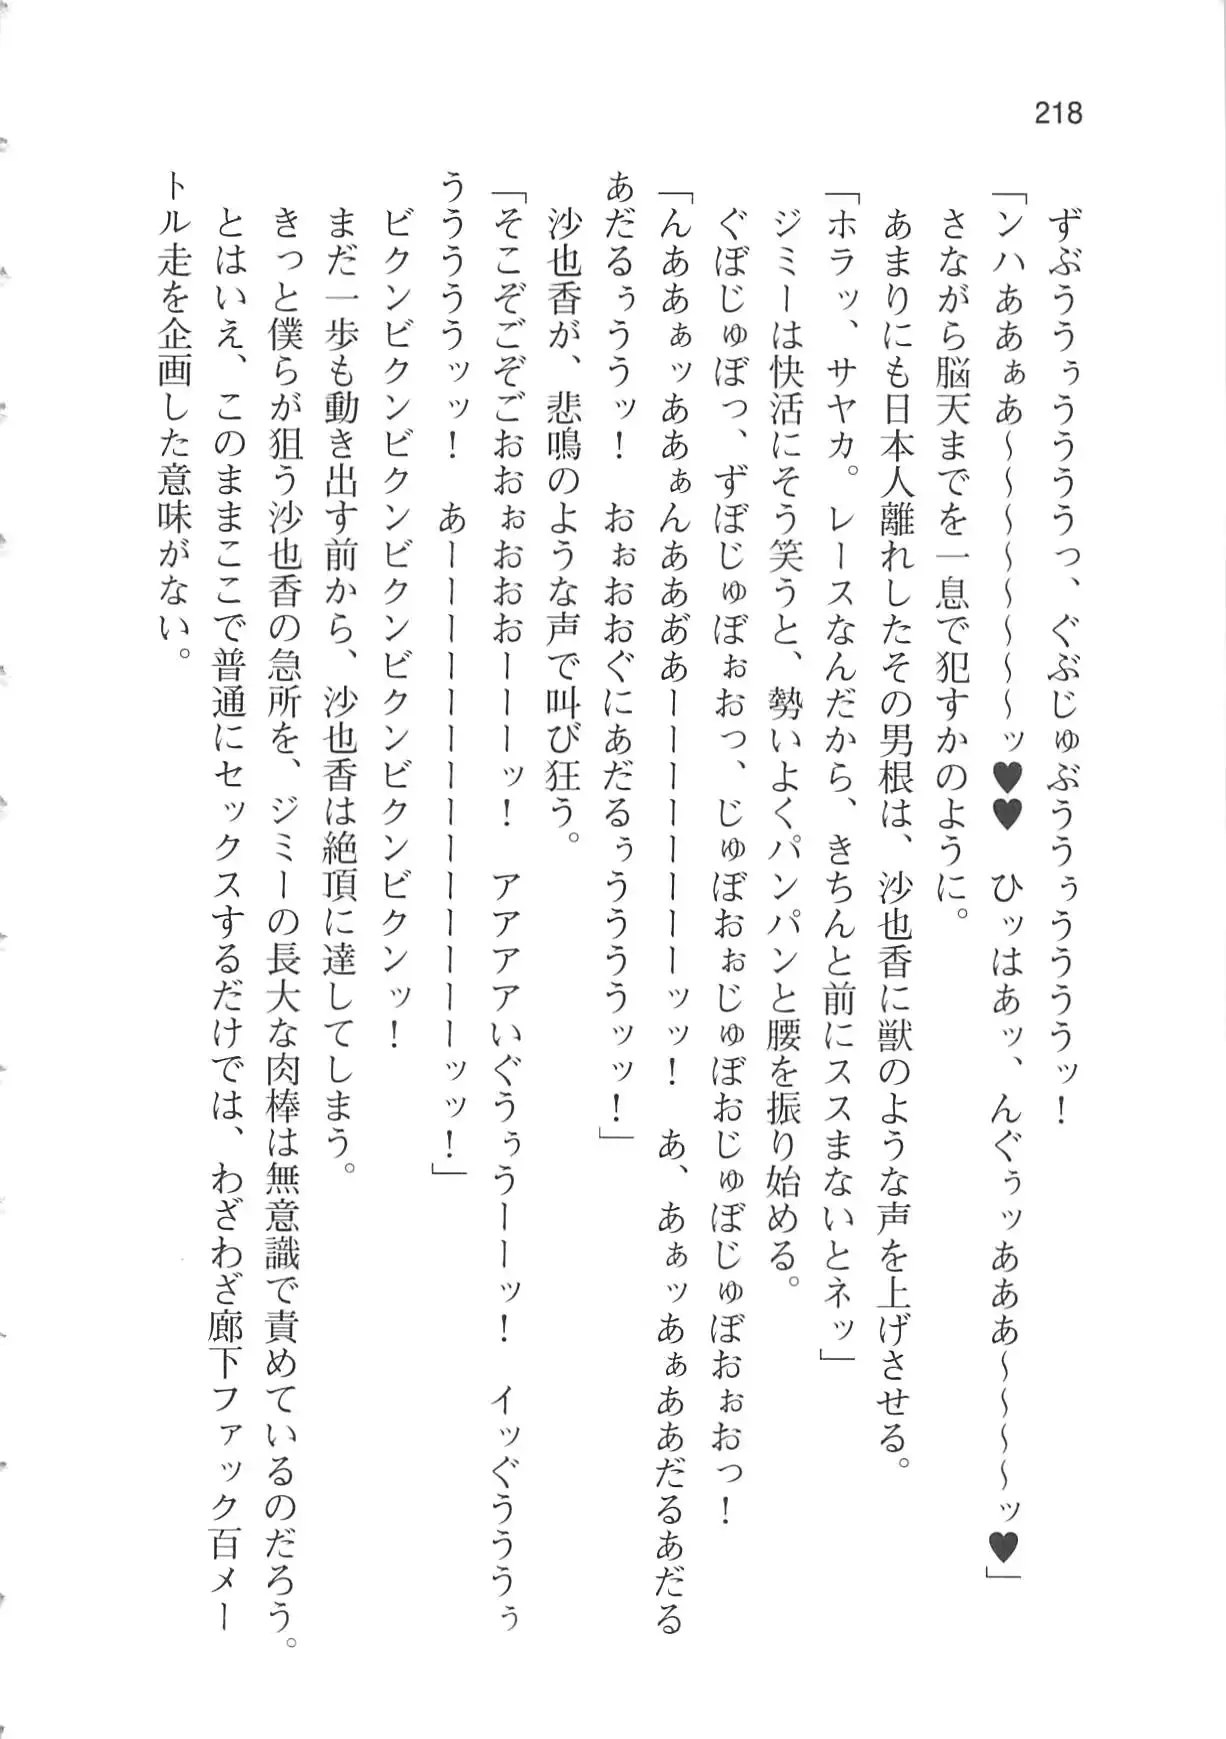 218
ずぶううぅうううっ、ぐぶじゅぶううぅうううッ！
「ンハああぁあ～～～～～～～ッ♥♥　ひッはあッ、んぐぅッあああ～～～～ッ♥」
さながら脳天までを一息で犯すかのように。
あまりにも日本人離れしたその男根は、沙也香に獣のような声を上げさせる。
「ホラッ、サヤカ。レースなんだから、きちんと前にススまないとネッ」
ジミーは快活にそう笑うと、勢いよくパンパンと腰を振り始める。
ぐぼじゅぼっ、ずぼじゅぼぉおっ、じゅぼおぉじゅぼおじゅぼじゅぼおぉおっ！
「んああぁッああぁんあああ゛あーーーーーーーーッッ！　あ、あぁッあぁああだるあだる
あだるぅううッ！　おぉおおぐにあだるぅううううッッ！」
沙也香が、悲鳴のような声で叫び狂う。
「そこぞごぞごおおぉおおおーーーッ！　アアアアいぐうぅうーーッ！　イッぐうううぅ
うううううッッ！　あーーーーーーーーーーーーーーーッッ！」
ビクンビクンビクンビクンビクンビクンビクンッ！
まだ一歩も動き出す前から、沙也香は絶頂に達してしまう。
きっと僕らが狙う沙也香の急所を、ジミーの長大な肉棒は無意識で責めているのだろう。
とはいえ、このままここで普通にセックスするだけでは、わざわざ廊下ファック百メー
トル走を企画した意味がない。